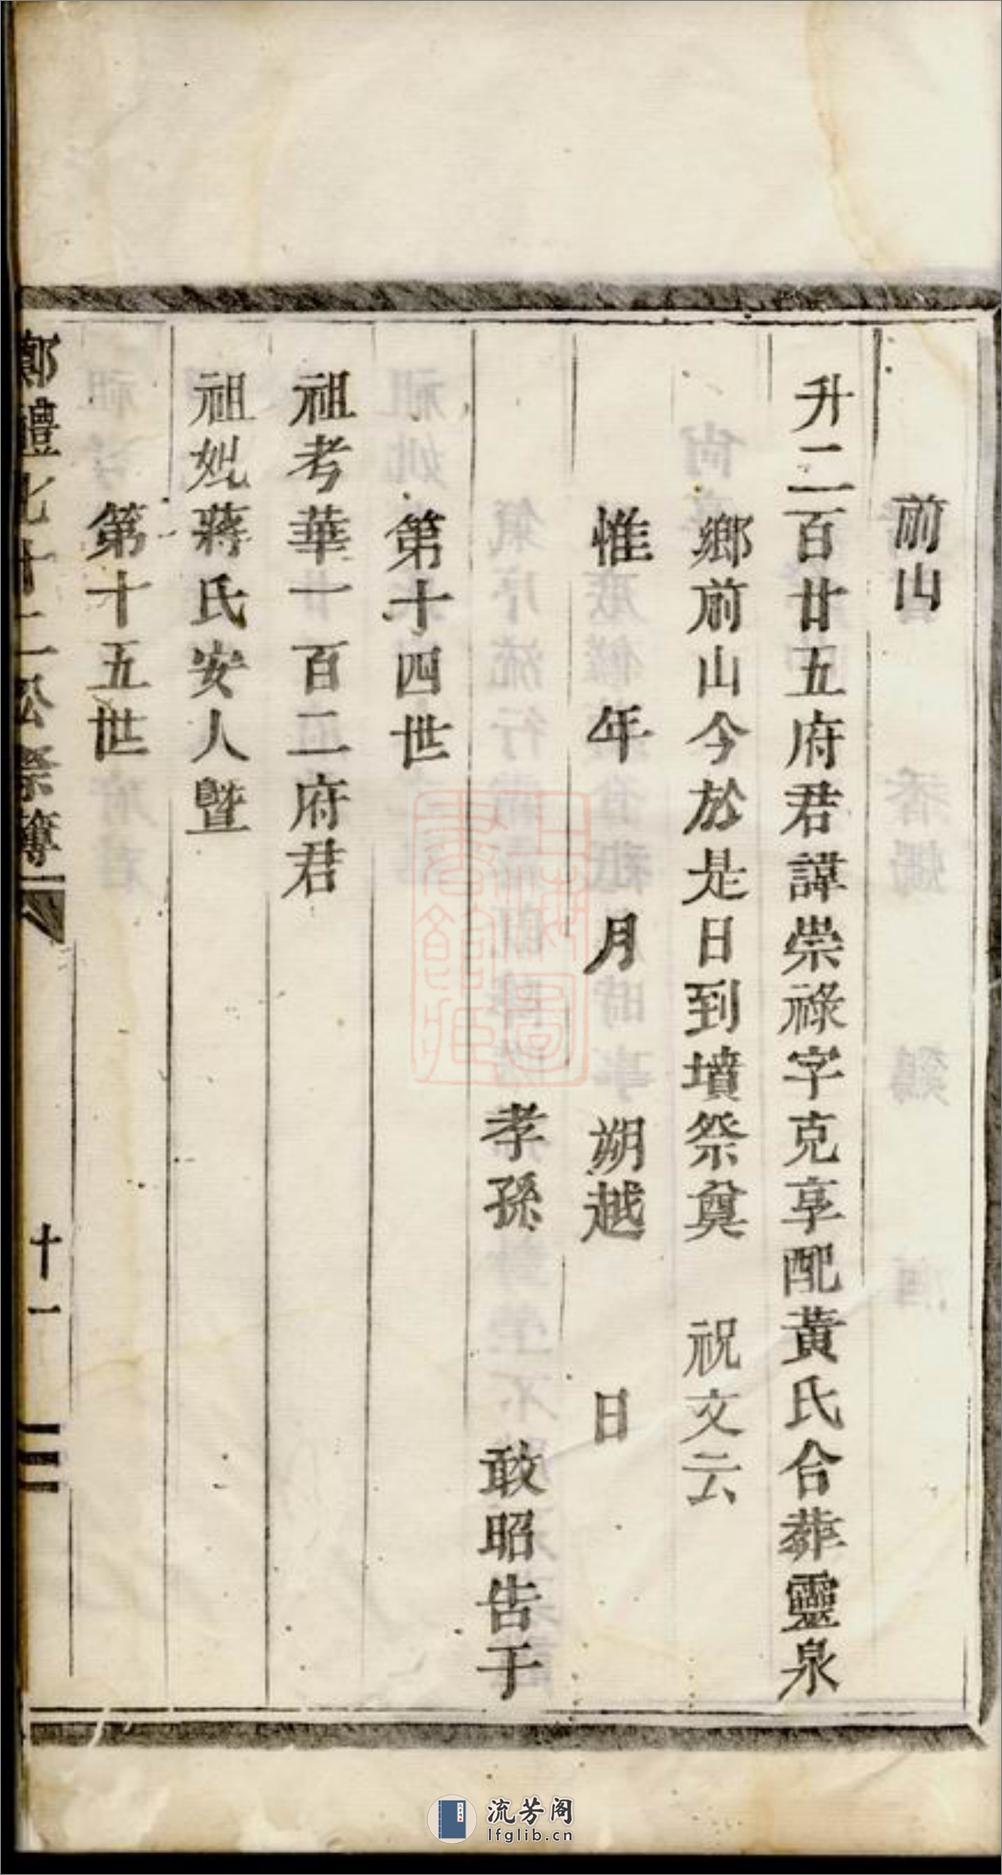 前山
升二百廿五府君諱崇祿字克享配黃氏合葬靈泉
鄉前山今於是日到墳祭奠 祝文云
惟 年 月 朔越 日
孝孫 敢昭告于
第十四世
祖考華一百二府君
祖妣蔣氏安人暨
第十五世
鄭禮七十二公祭簿
十一
上海圖書館藏
流芳阁
lfglib.cn